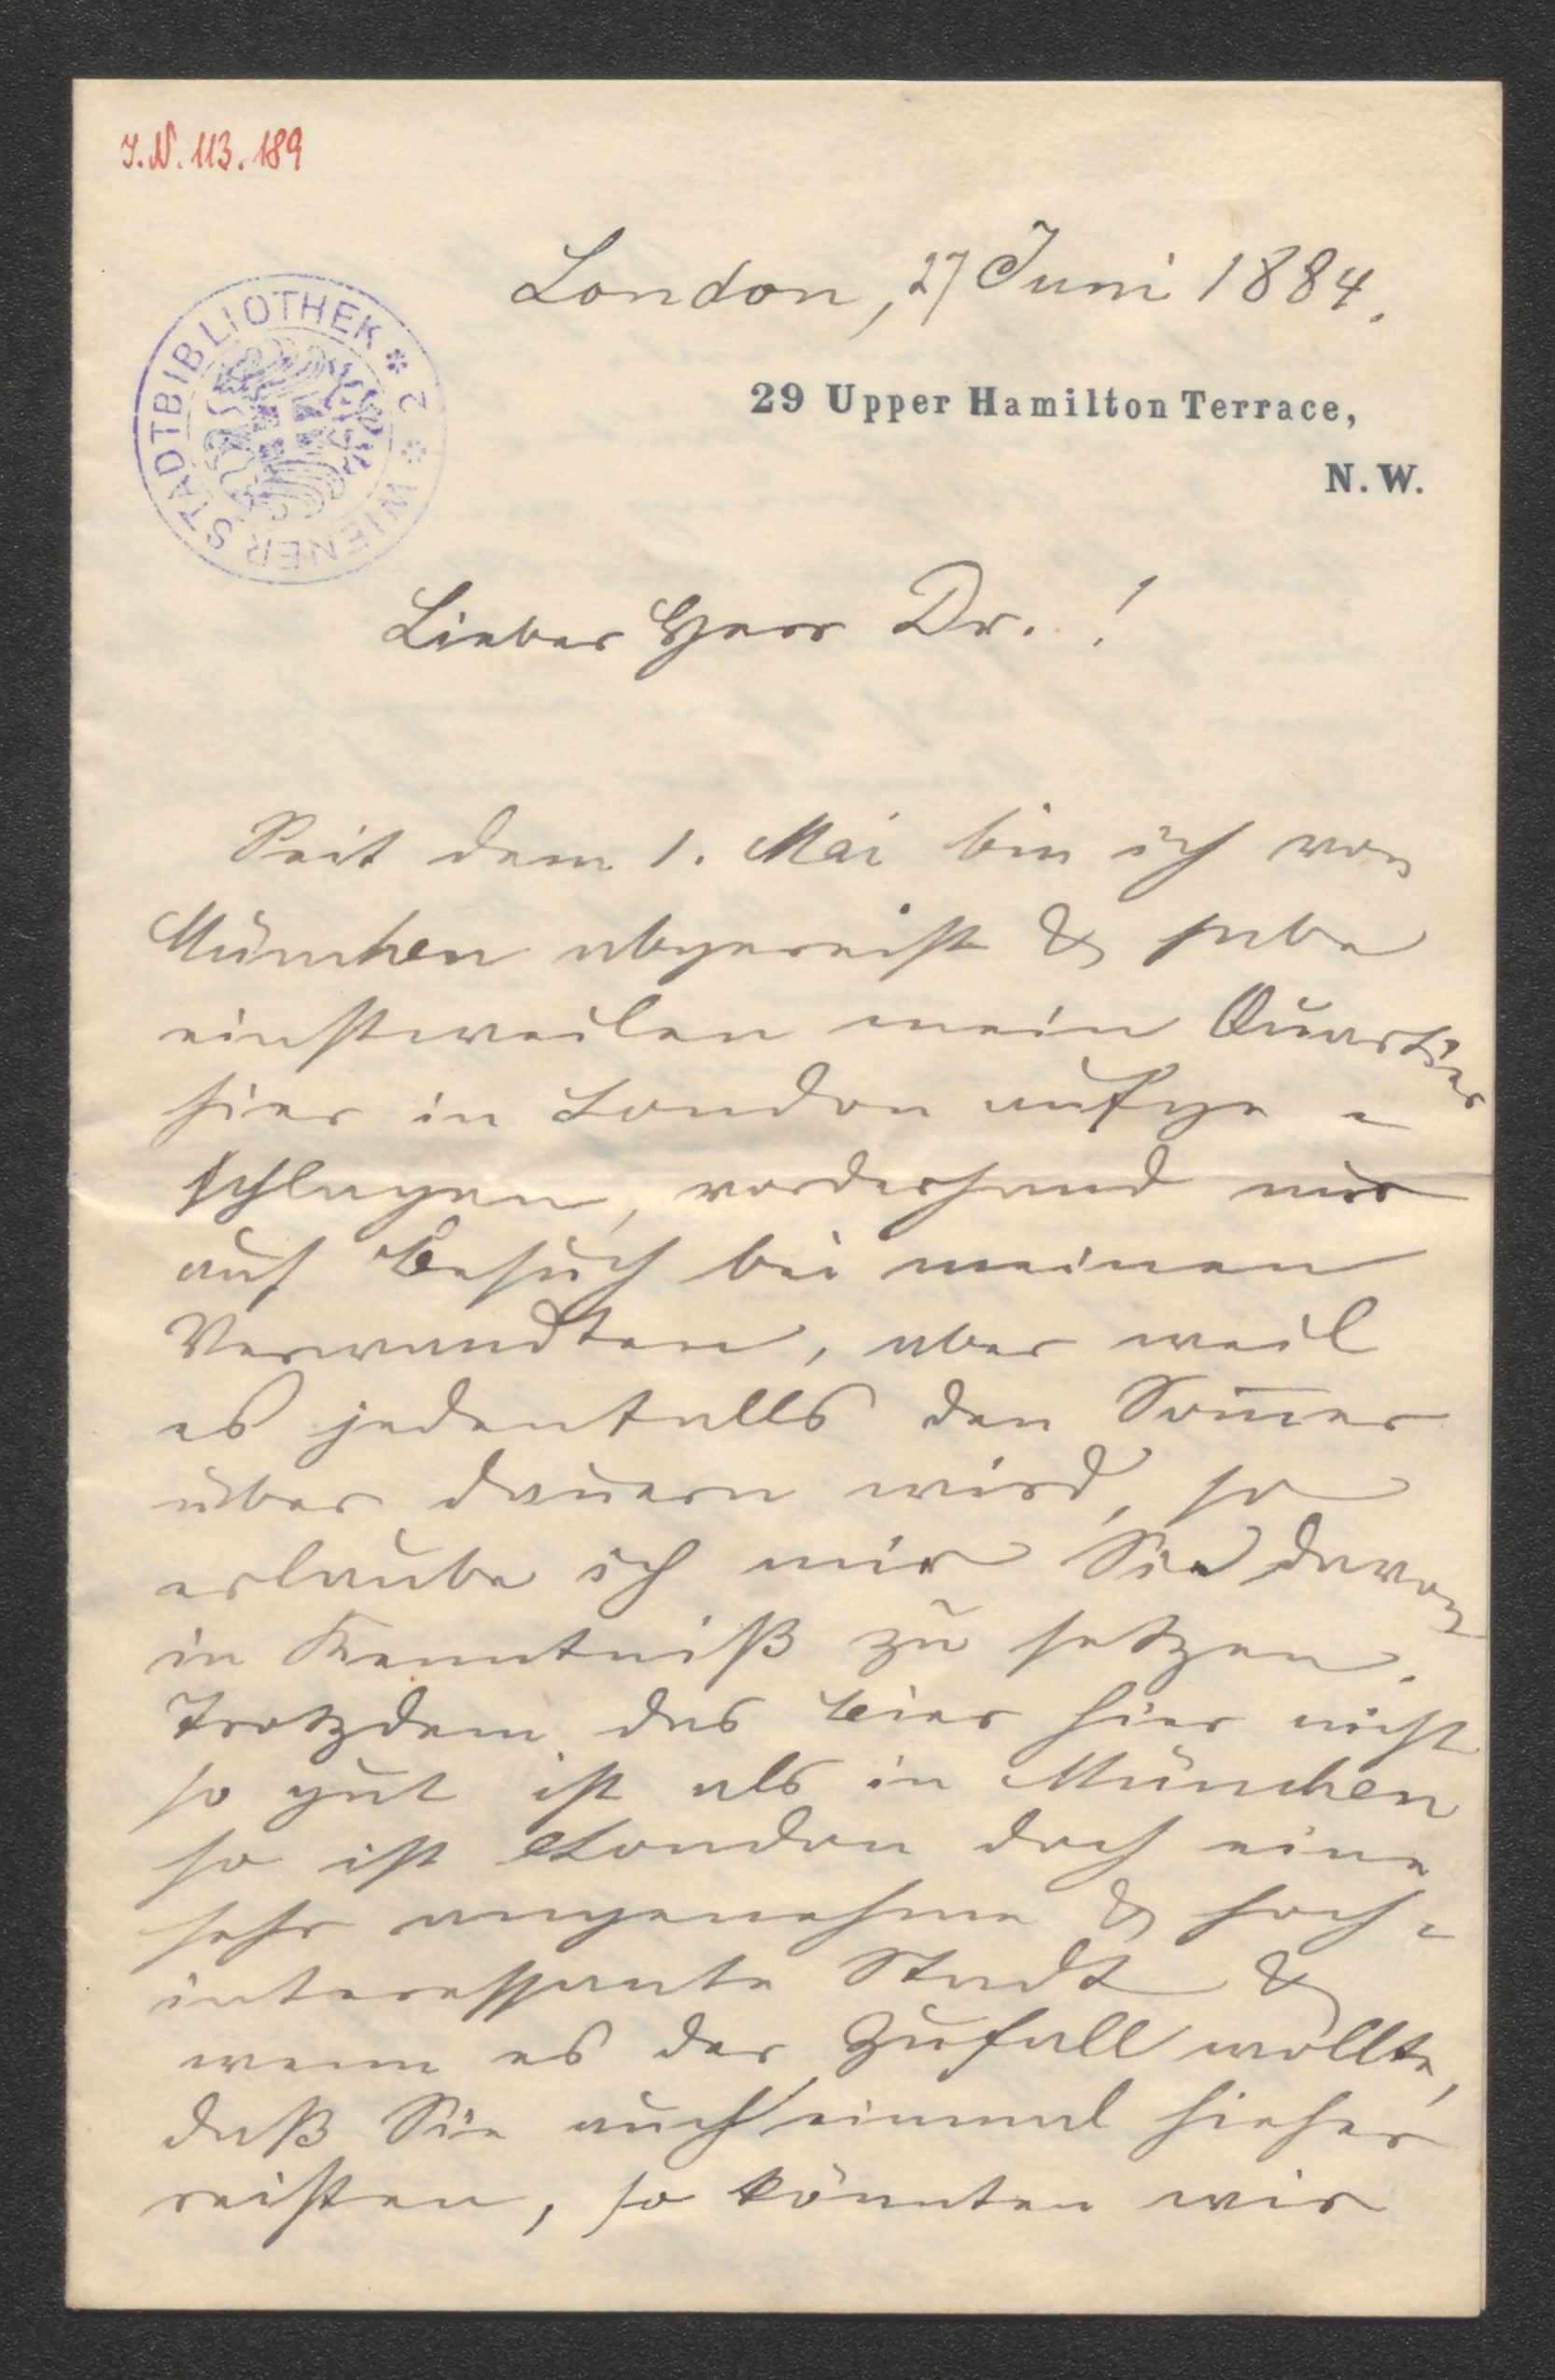 I.N. 113.189
London, 27 Juni 1884.
WIENER STADTBIBLIOTHEK * 2 *
29 Upper Hamilton Terrace,
N.W.
Lieber Herr Dr. !
Seit dem 1. Mai bin ich von
München abgereist & habe
einstweilen mein Quartier
hier in London aufge-
schlagen, vorderhand nur
auf Besuch bei meinen
Verwandten, aber weil
es jedenfalls den Som̄er
über dauern wird, so
erlaube ich mir Sie davon
in Kenntniß zu setzen.
Trotzdem das Bier hier nicht
so gut ist als in München
so ist London doch eine
sehr angenehme & hoch-
interessante Stadt &
wenn es der Zufall wollte,
daß Sie auch einmal hieher
reisten, so könnten wir